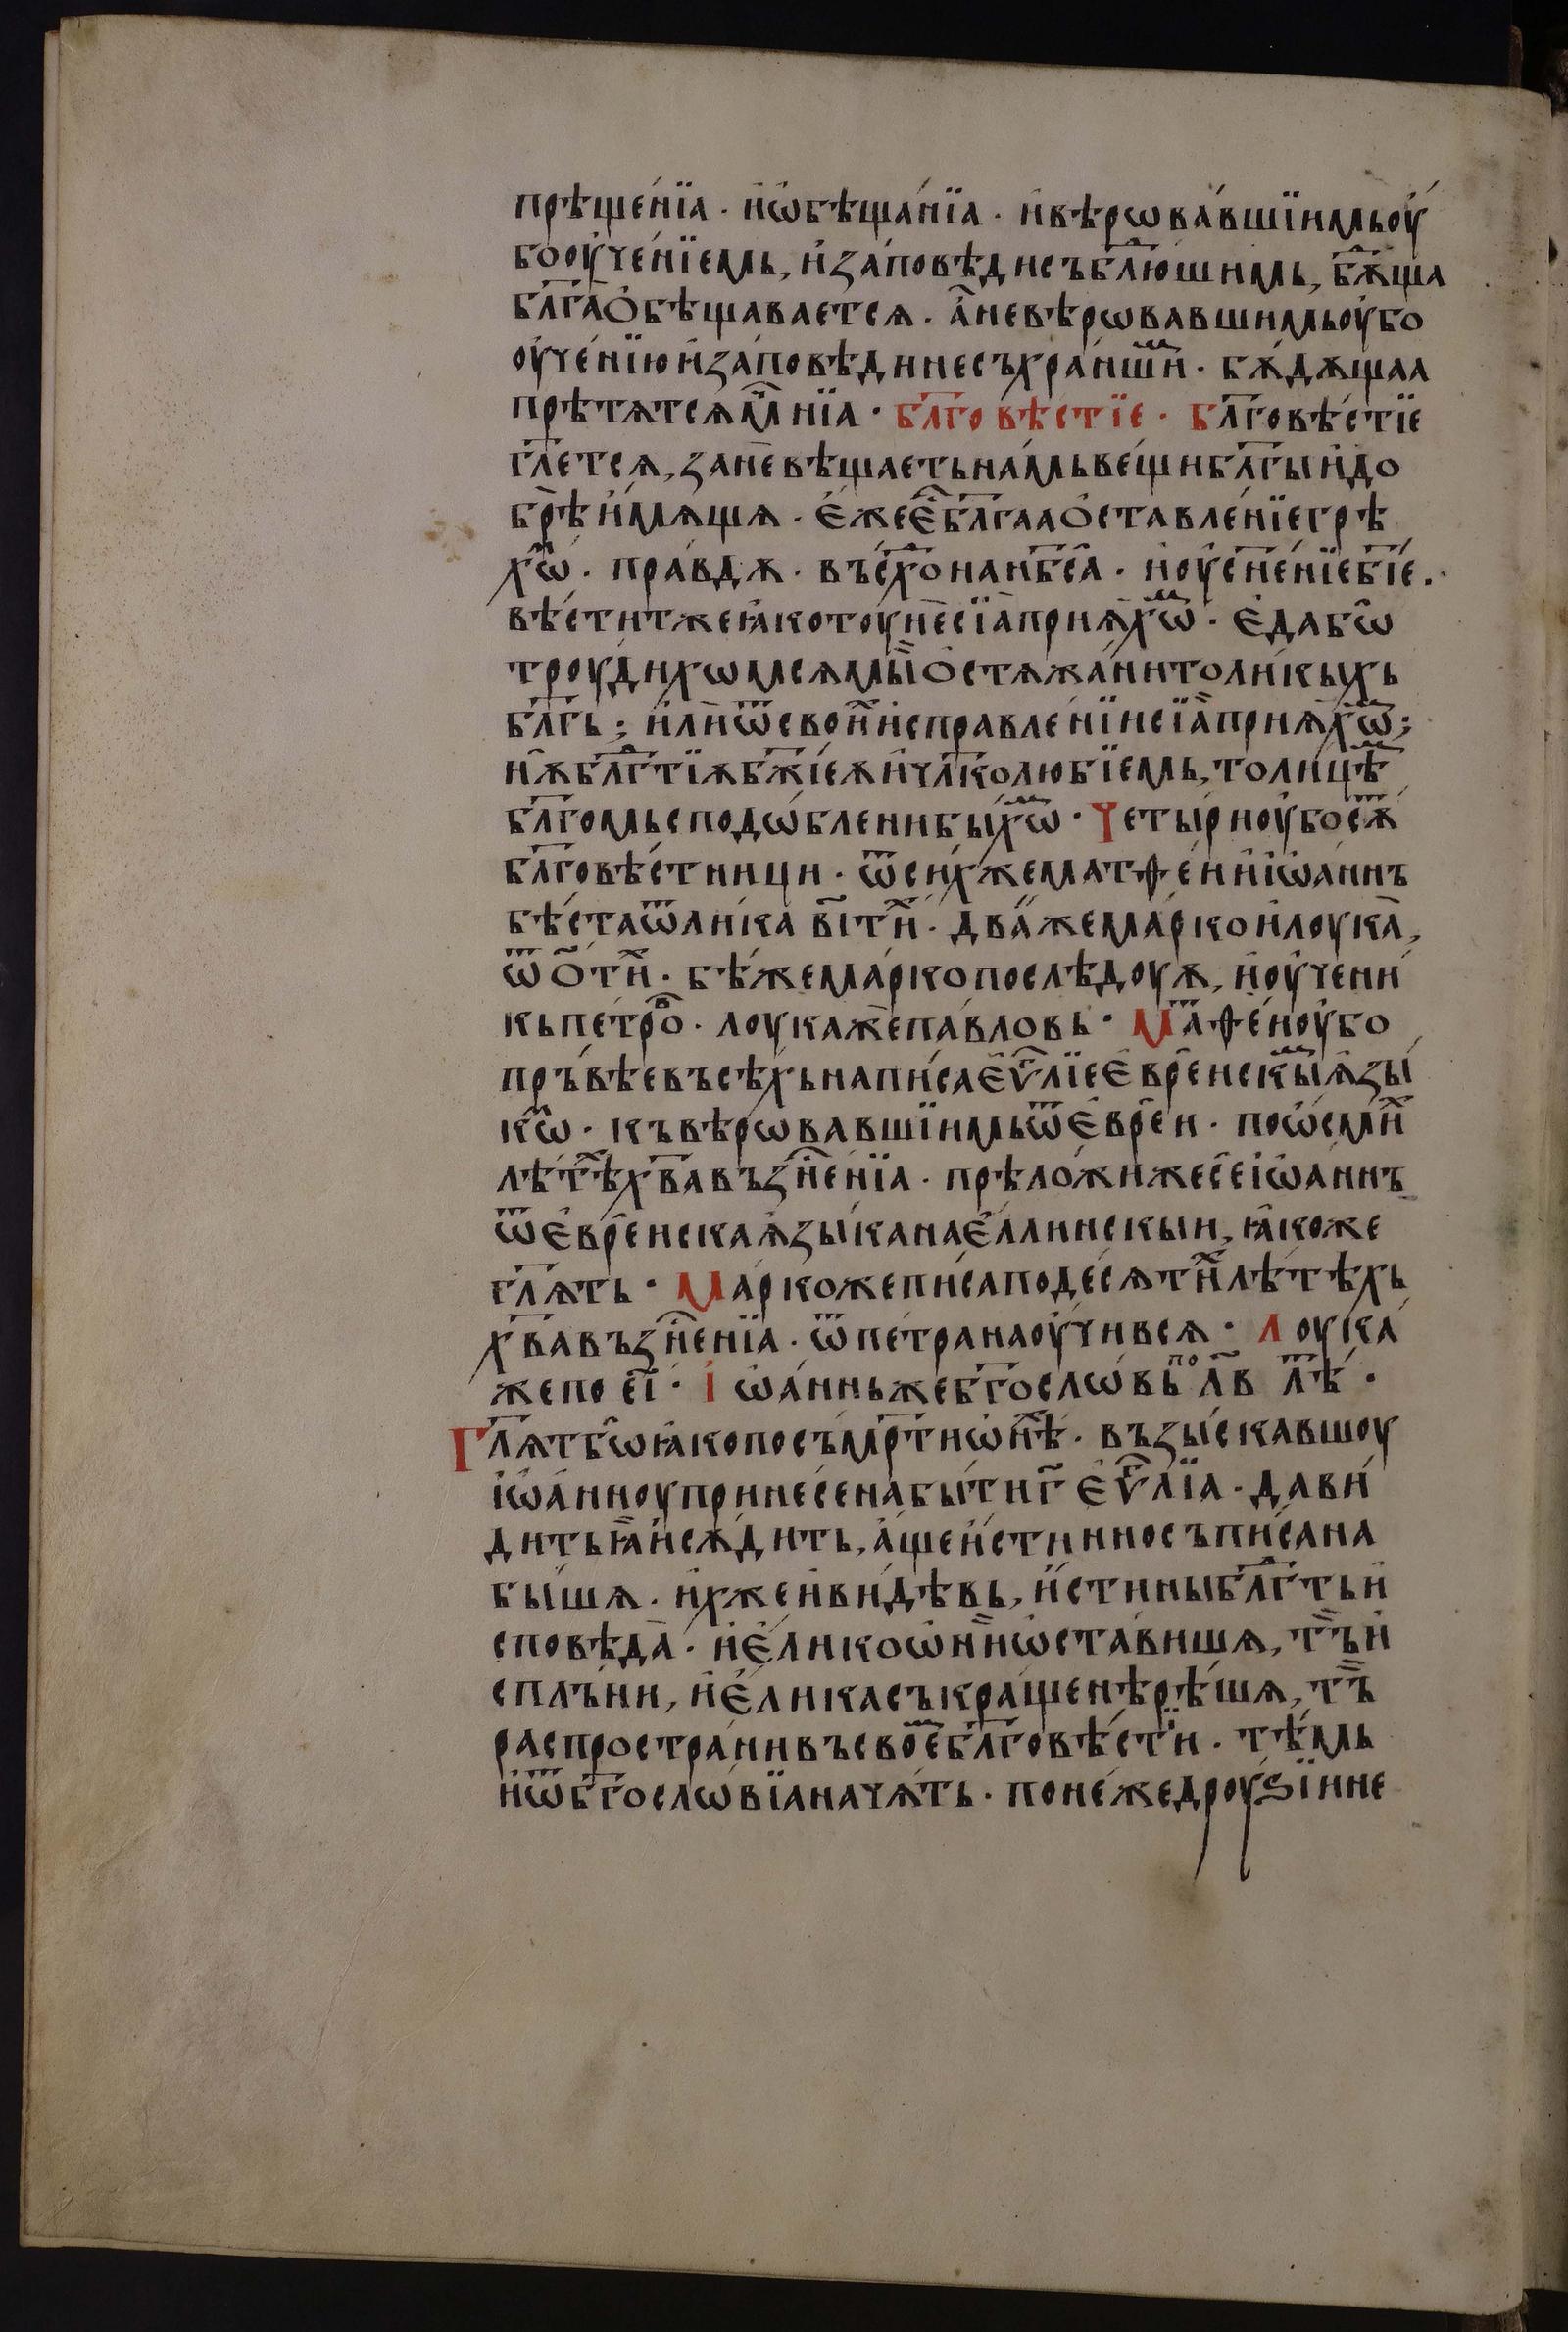 прѣще́нїа · и҆ѡ҆бѣща́нїа · и҆вѣрѡва́вшїимьоу҆
бооу҆че́нїемь, и҆за́повѣдисъблю́шимь, бѫ҇ща
бл҃га̀ѻ҆бѣщаваетсѧ · а҆̀невѣрѡвавшимьоу҆бо
оу҆че́нїюи҆за́повѣдинесъхра́ншїи · бѫ́дѫщаа
прѣтѧ́тсѧмⷱ҇нїа · бл҃говѣстїе · бл҃говѣ́стїе
гл҃е́тсѧ, занѐвѣщаетьна́мьве́щибл҃гы̀и҆до
брѣ̀и҆мѧщѧ · є҆жеє҆̑бл҃гааѻ҆ставле́нїегрѣ
хѡ̑ · пра́вдѫ · въсхⷪ҇нан҃б҃са̀ · и҆оу҆с҃не́нїеб҃їе ·
вѣститжеꙗ҆котоу́нѐсїа̀прїѧ́хѡⷨ · є҆дабѡ̑
троуди́хѡмсѧмы̀ѻ҆стѧжа́нитоликыхь
бл҃гь ; и҆лиѿсвои́ⷯи҆справле́нїисїа̀прїѧ́хѡⷨ ;
нѫ̀бл҃гⷣтїѫб҃жїеѫи҆чл҃колю́бїемь, толи́цѣⷨ
бл҃гомьсподѡ́бленибы́хѡⷨ · Четы́риоу҆босѫⷮ
бл҃говѣ́стници · ѿси́хжематѳе́ии҆і҆ѡ҆а́ннъ
бѣ́стаѿли́ка в҃і҃тиⷯ · два́жема́ркои҆лоука̀,
ѿѻ҃тиⷯ · бѣ́жема́ркопослѣ́доуѫ, и҆оу҆чени́
кьпетро́ⷡ · лоука́жепа́вловь · Маⷮѳе́иоу҆бо
пръвѣевъсѣ́хьнапи́саєѵ҃лїеє҆вре́искыⷨѧ҆зы́
кѡⷨ · къвѣрѡвавшїимьѿє҆вре́и · поѡ҆сми́ⷯ
лѣ́тѣⷯх҃вавъзн҃се́нїа · прѣло́жижесеі҆ѡ҆а́ннъ
ѿє҆вре́искаѧ҆зы́канає҆́ллинскыи, ꙗ҆коже
гл҃ѧть · Ма́ркожепи́саподесѧти́ⷯлѣ́тѣхь
х҃вавъзн҃се́нїа · ѿпе́транаоу҆чи́всѧ · Лоука́
жепо е҃і · І҆ѡ҆а́нньжебг҃ослѡ́вь по л҃в лѣⷮ ·
Гл҃ѧтбѡ̑ꙗ҆копосъмр҃тиѡ҆нѣⷯ · възы́скавшоу
і҆ѡ҆а́нноупринесе́набы́тиг҃ є҆ѵ҃лїа · дави́
дитьꙗ҆̀и҆сѫ́дить, а҆́щеи҆́стинносъпи́сана
бы́шѧ · и҆́хжеи҆ви́дѣвь, и҆́стиныбл҃гⷣтьи҆
сповѣ́да · и҆є҆ликоѡ҆ни̏ѡ҆ста́вишѧ, тъ̏и҆
спль́ни, и҆є҆ликасъкраще́нѣрѣ́шѧ, тъ̏
распростра́нивъсвоеⷨбл҃говѣ́стїи · тѣ́мь
и҆ѿбг҃ослѡ́вїаначѧ́ть · понежедроуѕїине